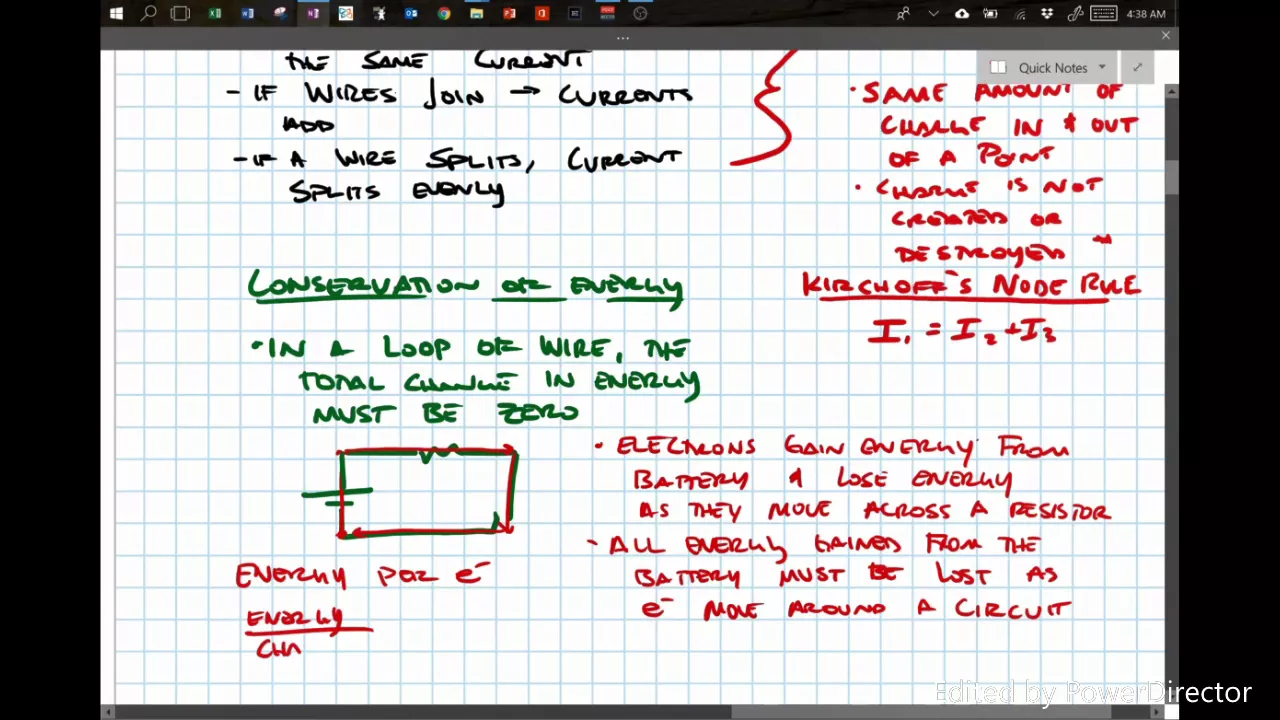 4:38 AM
Quick Notes
THE SAME CURRENT
- IF WIRES JOIN → CURRENTS
ADD
- IF A WIRE SPLITS, CURRENT
SPLITS EVENLY
• SAME AMOUNT OF
CHARGE IN & OUT
OF A POINT
• CHARGE IS NOT
CREATED OR
DESTROYED
KIRCHOFF'S NODE RULE
I₁ = I₂ + I₃
CONSERVATION OF ENERGY
• IN A LOOP OF WIRE, THE
TOTAL CHANGE IN ENERGY
MUST BE ZERO
• ELECTRONS GAIN ENERGY FROM
BATTERY & LOSE ENERGY
AS THEY MOVE ACROSS A RESISTOR
• ALL ENERGY GAINED FROM THE
BATTERY MUST BE LOST AS
e⁻ MOVE AROUND A CIRCUIT
ENERGY PER e⁻
ENERGY
CHA
Edited by PowerDirector